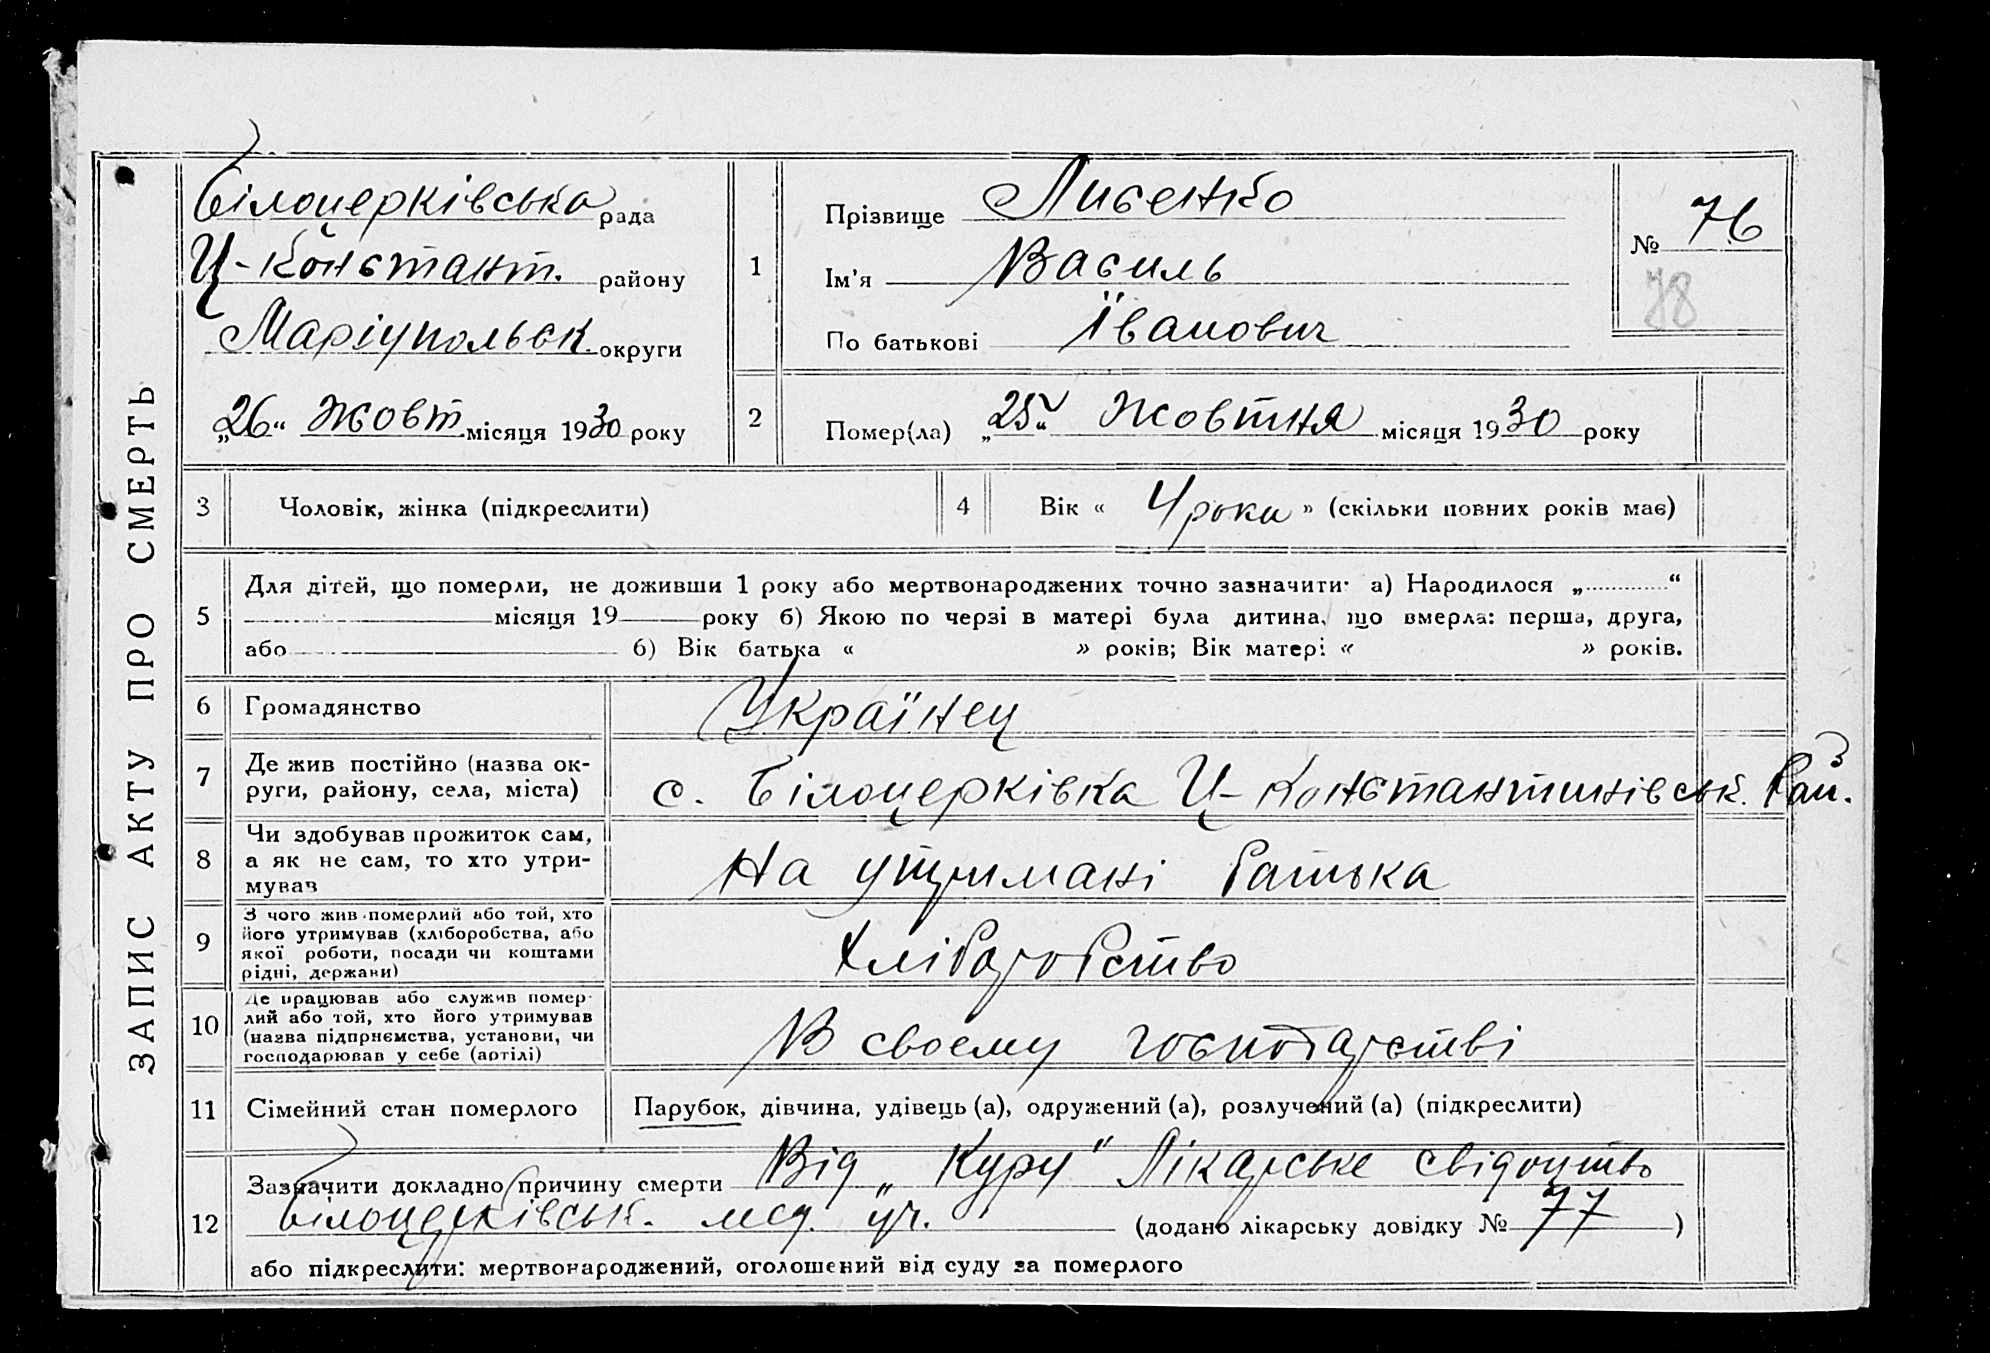 ЗАПИС АКТУ ПРО СМЕРТЬ
Білоцерківська рада
Ц-Констант. району
Маріупольськ. округи
„26“ Жовт місяця 1930 року
1
Прізвище Лисенко
Ім'я Василь
По батькові Іванович
№ 76
78
2
Помер(ла) „25“ Жовтня місяця 1930 року
3 Чоловік, жінка (підкреслити)
4 Вік « 4 роки » (скільки повних років має)
5
Для дітей, що померли, не доживши 1 року або мертвонароджених точно зазначити: а) Народилося „ “
місяця 19 року б) Якою по черзі в матері була дитина, що вмерла: перша, друга,
або б) Вік батька « » років; Вік матері « » років.
6 Громадянство Українец
7 Де жив постійно (назва ок-
руги, району, села, міста) с. Білоцерківка Ц-Константинівськ. Рай.
8 Чи здобував прожиток сам,
а як не сам, то хто утри-
мував На утримані батька
9 З чого жив померлий або той, хто
його утримував (хліборобства, або
якої роботи, посади чи коштами
рідні, держави) Хліборобство
10 Де працював або служив помер-
лий або той, хто його утримував
(назва підприємства, установи, чи
господарював у себе (артілі) В своему господарстві
11 Сімейний стан померлого Парубок, дівчина, удівець (а), одружений (а), розлучений (а) (підкреслити)
12
Зазначити докладно причину смерти Від „Куру“ Лікарське свідоцтво
Білоцерківськ. мед. уч. (додано лікарську довідку № 77 )
або підкреслити: мертвонароджений, оголошений від суду за померлого